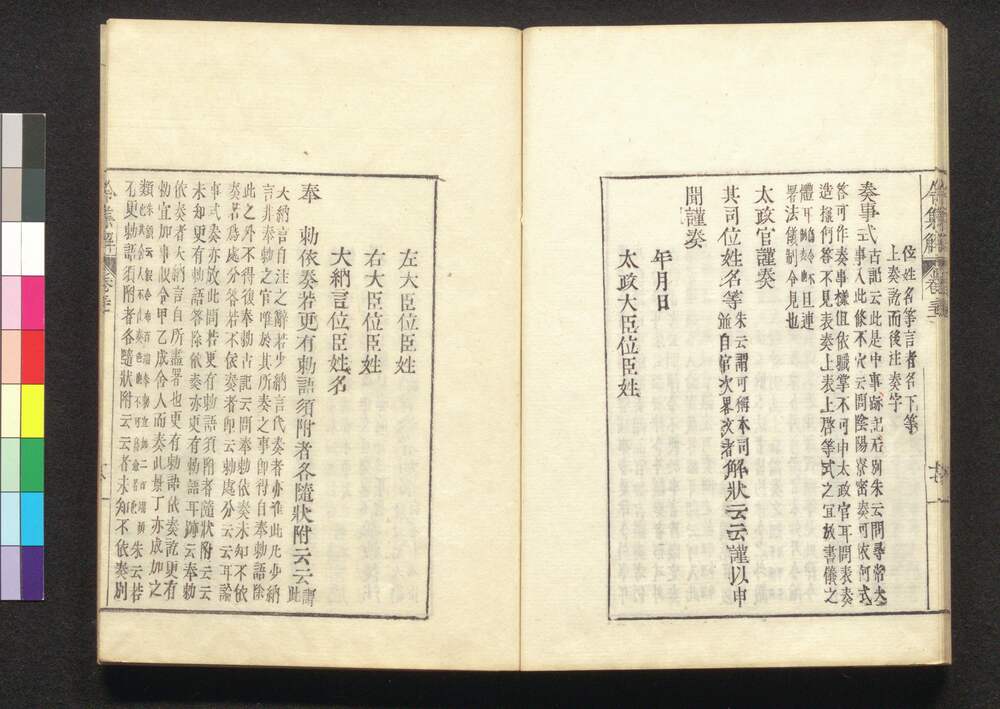 位姓名等言者名下等
上奏訖而後注奏字
奏事式
古記云此是中事跡記云別朱云問尋常大
事入此條不穴云問陰陽寮密奏可依何式
答可作奏事樣但依職掌不可申太政官耳問表奏
造樣何答不見表奏上表上啓等式之宜放書儀之
體耳
署法儀制令見也
太政官謹奏
其司位姓名等
朱云謂可稱本司
並自官次畧次者
解狀云云謹以申
聞謹奏
年月日
太政大臣位臣姓
左大臣位臣姓
右大臣位臣姓
大納言位臣姓名
奉　勅依奏若更有勅語須附者各隨狀附云云
謂此
大納言自注之辭若少納言代奏者亦准此凡少納
言非奉勅之官唯於其所奏之事即得自奉勅語除
此之外不得復奉勅古記云問奉勅依奏未知不依
奏若爲處分答若不依奏者即云勅處分云云耳論
事式奏亦放此問若更有勅語須附者隨狀附云云
未知更有勅語答除依奏亦更有勅語耳跡云奉勅
依奏者大納言自所盡署也更有勅語依奏訖更有
勅宜加事假令甲乙成令人而奏此景丁亦成加之
類
朱云若
不更勅語須附者各隨狀附云云者未知不依奏別
令集解
卷三十一